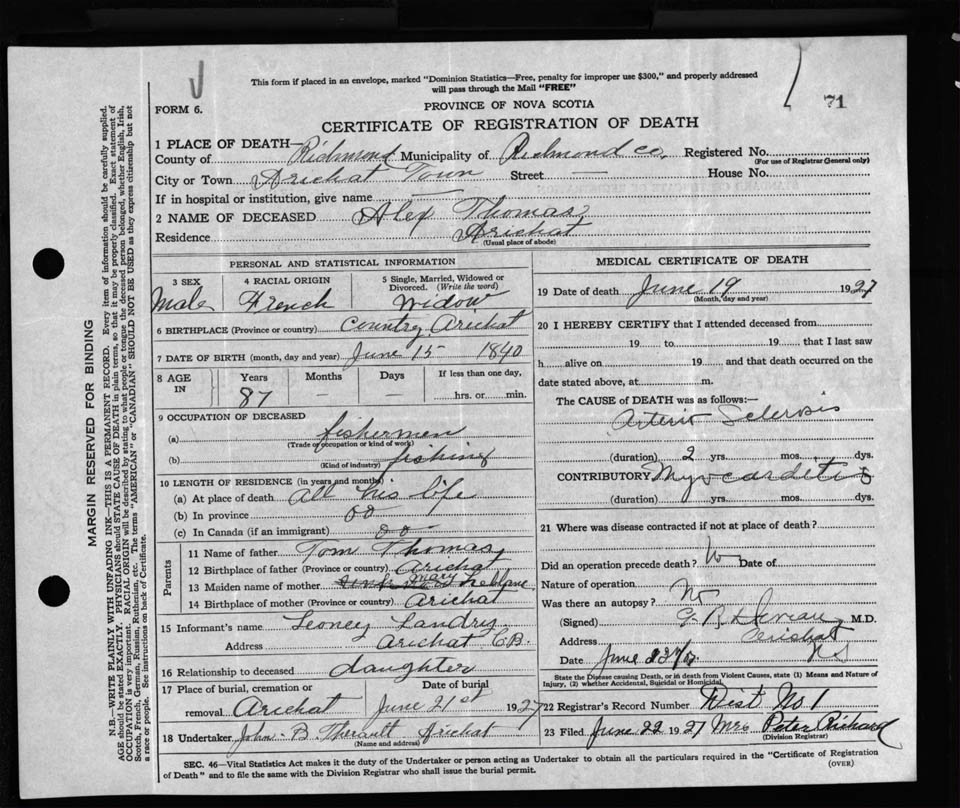 This form if placed in an envelope, marked "Dominion Statistics—Free, penalty for improper use $300," and properly addressed
will pass through the Mail "FREE"
71
FORM 6.
PROVINCE OF NOVA SCOTIA
CERTIFICATE OF REGISTRATION OF DEATH
1 PLACE OF DEATH—
County of Richmond Municipality of Richmond Co. Registered No.
(For use of Registrar General only)
City or Town Arichat Town Street — House No.
If in hospital or institution, give name
2 NAME OF DECEASED Alex Thomas
Residence Arichat
(Usual place of abode)
PERSONAL AND STATISTICAL INFORMATION
3 SEX 4 RACIAL ORIGIN 5 Single, Married, Widowed or
Divorced. (Write the word)
Male French Widow
6 BIRTHPLACE (Province or country) Country Arichat
7 DATE OF BIRTH (month, day and year) June 15 1840
8 AGE IN Years Months Days If less than one day,
87 — — hrs. or min.
9 OCCUPATION OF DECEASED
(a) fishermen
(Trade or occupation or kind of work)
(b) fishing
(Kind of industry)
10 LENGTH OF RESIDENCE (in years and months)
(a) At place of death all his life
(b) In province do
(c) In Canada (if an immigrant) do
Parents
11 Name of father Tom Thomas
12 Birthplace of father (Province or country) Arichat
13 Maiden name of mother Mary
14 Birthplace of mother (Province or country) Arichat
15 Informant's name Leoney Landry
Address Arichat C.B.
16 Relationship to deceased daughter
17 Place of burial, cremation or Date of burial
removal Arichat June 21st 1927
18 Undertaker John B. Theriault Arichat
(Name and address)
MEDICAL CERTIFICATE OF DEATH
19 Date of death June 19 1927
(Month, day and year)
20 I HEREBY CERTIFY that I attended deceased from
19 to 19 that I last saw
h alive on 19 and that death occurred on the
date stated above, at m.
The CAUSE of DEATH was as follows:
Arterio Sclerosis
(duration) 2 yrs. mos. dys.
CONTRIBUTORY Myocarditis
(duration) yrs. mos. dys.
21 Where was disease contracted if not at place of death?
Did an operation precede death? No Date of
Nature of operation
Was there an autopsy? No
(Signed) M.D.
Address Arichat
NS
Date June
State the Disease causing Death, or in death from Violent Causes, state (1) Means and Nature of
Injury, (2) whether Accidental, Suicidal or Homicidal.
22 Registrar's Record Number Dist No 1
23 Filed June 22 1927 Mrs Peter Richard
(Division Registrar)
SEC. 46—Vital Statistics Act makes it the duty of the Undertaker or person acting as Undertaker to obtain all the particulars required in the "Certificate of Registration
of Death" and to file the same with the Division Registrar who shall issue the burial permit.
(OVER)
MARGIN RESERVED FOR BINDING
N.B.—WRITE PLAINLY, WITH UNFADING INK—THIS IS A PERMANENT RECORD. Every item of information should be carefully supplied.
AGE should be stated EXACTLY. PHYSICIANS should STATE CAUSE OF DEATH in plain terms, so that it may be properly classified. Exact statement of
OCCUPATION is very important. RACIAL ORIGIN will be described by stating to what people or tongue the deceased person belonged, whether English, Irish,
Scotch, French, German, Russian, Ruthenian, etc. The terms "AMERICAN" or "CANADIAN" SHOULD NOT BE USED as they express citizenship but not
a race or people. See instructions on back of Certificate.